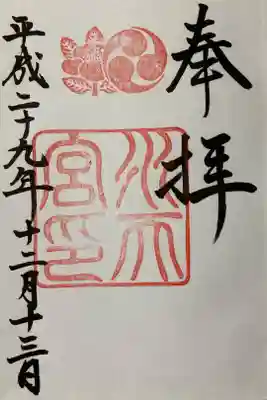 奉拝
水天宮印
平成二十九年十二月十三日